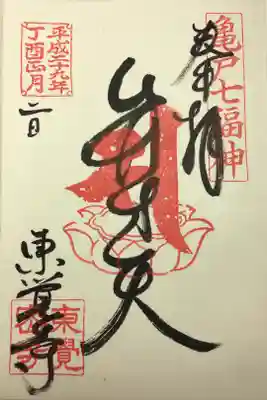 亀戸七福神
奉拝
弁才天
平成二十九年
丁酉正月
二日
東覚寺
東覺